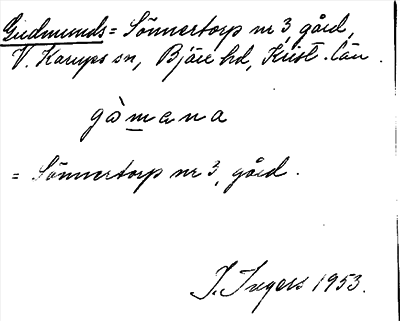 Gudmunds = Sönnertorp nr 3, gård,
V. Karups sn, Bjäre hd, Krist. län.
gàmana
= Sönnertorp nr 3, gård.
I. Ingers 1953.